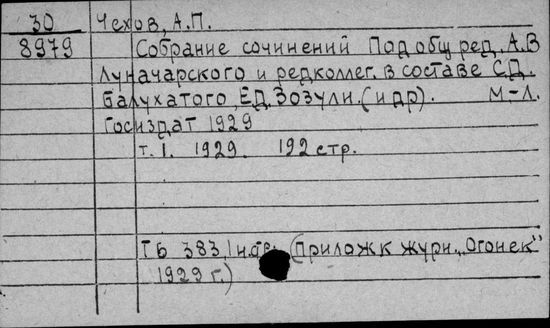 30 Чехов, А.П.
8979 Собрание сочинений Под общ ред. А.В
Луначарского и редколлег. в составе С.Д.
Балухатого, Е.Д. Зозули. (и др). М-Л.
Госиздат 1929
т. 1. 1929. 192 стр.
ТБ 383 (Прилож к журн. „Огонек"
1929 г.)